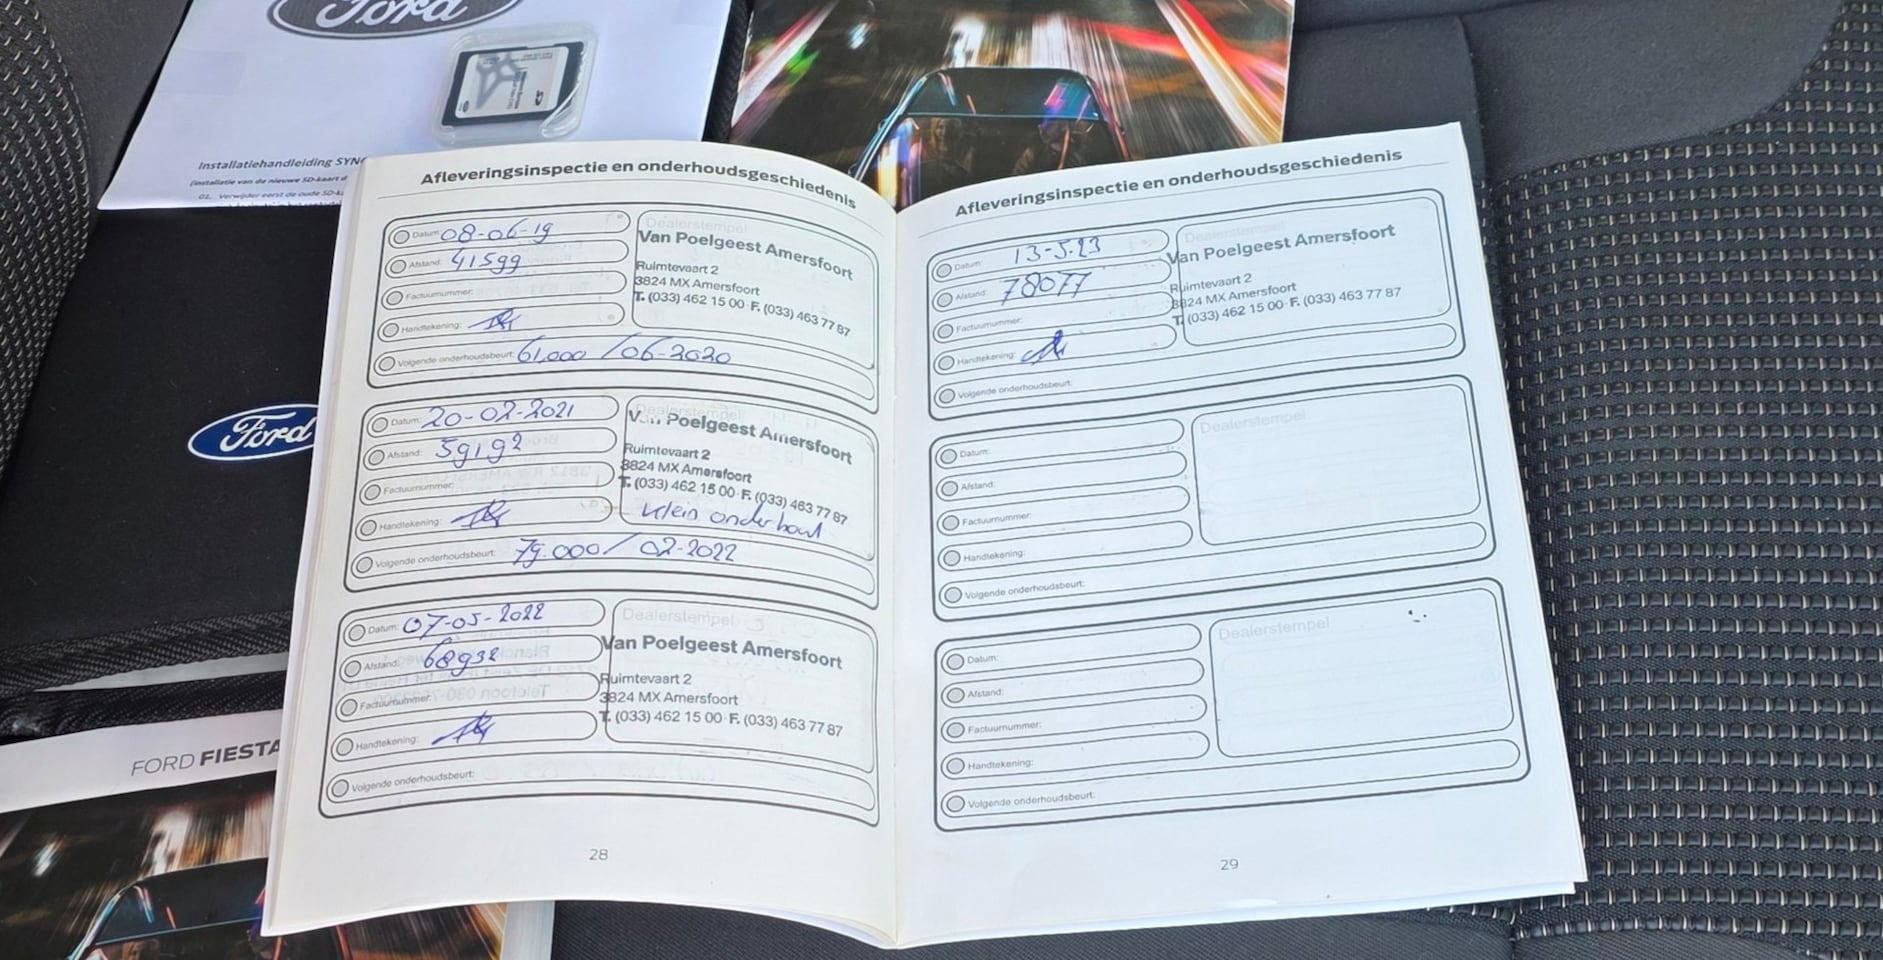 Ford
Installatiehandleiding SYNC
(installatie van de nieuwe SD-kaart d
01. Verwijder eerst de oude SD-ka
Ford
FORD FIESTA
Afleveringsinspectie en onderhoudsgeschiedenis
Datum: 08-06-19
Afstand: 41599
Factuurnummer:
Handtekening:
Volgende onderhoudsbeurt: 61.000 / 06-2020
Dealerstempel
Van Poelgeest Amersfoort
Ruimtevaart 2
3824 MX Amersfoort
T. (033) 462 15 00 · F. (033) 463 77 87
Datum: 20-02-2021
Afstand: 59192
Factuurnummer:
Handtekening:
Volgende onderhoudsbeurt: 79.000 / 02-2022
Dealerstempel
Van Poelgeest Amersfoort
Ruimtevaart 2
3824 MX Amersfoort
T. (033) 462 15 00 · F. (033) 463 77 87
klein onderhoud
Datum: 07-05-2022
Afstand: 68932
Factuurnummer:
Handtekening:
Volgende onderhoudsbeurt:
Dealerstempel
Van Poelgeest Amersfoort
Ruimtevaart 2
3824 MX Amersfoort
T. (033) 462 15 00 · F. (033) 463 77 87
28
Afleveringsinspectie en onderhoudsgeschiedenis
Datum: 13-5-23
Afstand: 78077
Factuurnummer:
Handtekening:
Volgende onderhoudsbeurt:
Dealerstempel
Van Poelgeest Amersfoort
Ruimtevaart 2
3824 MX Amersfoort
T. (033) 462 15 00 · F. (033) 463 77 87
Datum:
Afstand:
Factuurnummer:
Handtekening:
Volgende onderhoudsbeurt:
Dealerstempel
Datum:
Afstand:
Factuurnummer:
Handtekening:
Volgende onderhoudsbeurt:
Dealerstempel
29